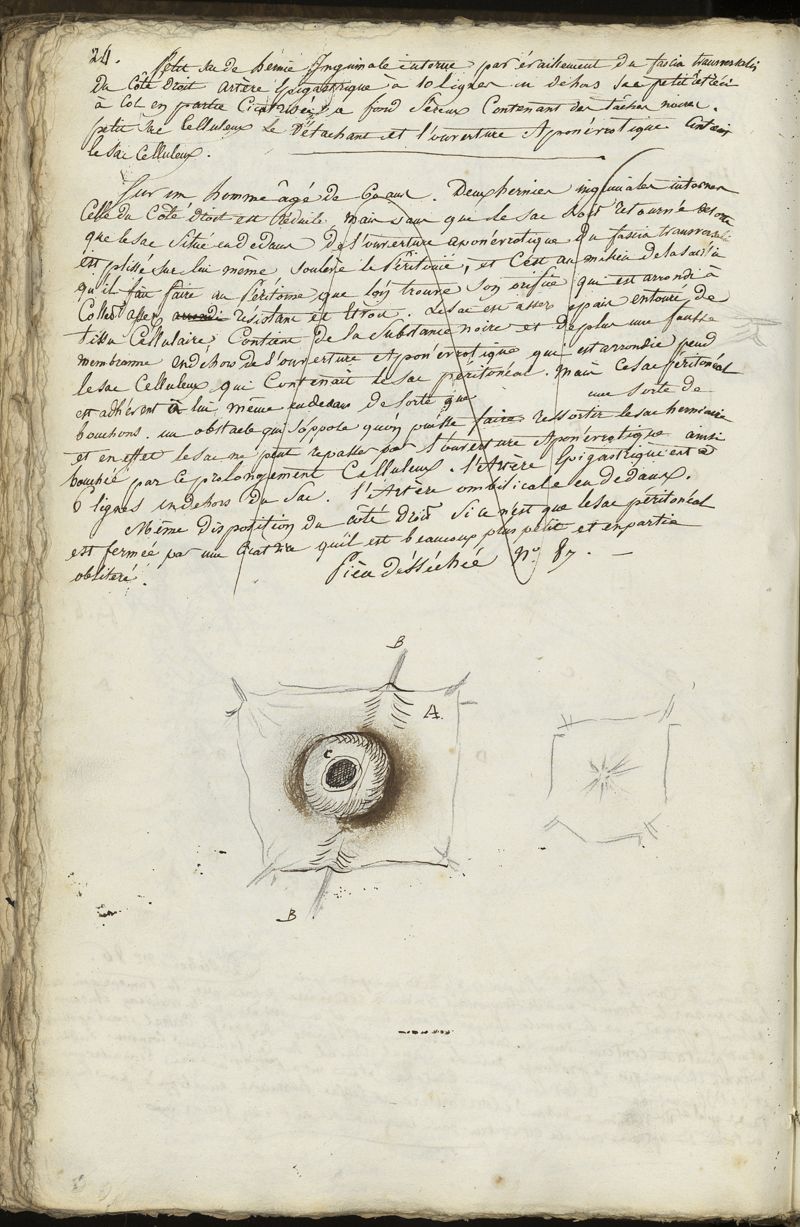 24.
Petit sac de hernie Inguinale interne par éraillement du fascia transversalis
du Côté droit artère Epigastrique à 10 lignes en dehors sac petit
à Col en partie Cicatrisée, a fond Séreux Contenant des taches noires.
petit sac Celluleux Le Détachant et l'ouverture Aponévrotique
le sac Celluleux.
Sur un homme âgé de 60 ans. Deux hernies inguinales internes
Celle du Côté droit est réduite mais sans que le sac soit retourné de sorte
que le sac situé en dedans de l'ouverture aponévrotique du fascia transversalis
est plissé sur lui même soulève le Péritoine, et C'est au milieu de la saillie
qu'il fait faire au Péritoine que l'on trouve Son orifice qui est arrondi à
Collet assez arrondi résistant et étroit. Le sac est assez epais entouré de
tissu Cellulaire, Contient de la substance noire et de plus une fausse
membranne en dehors de l'ouverture Aponévrotique qui est arrondie pend
le sac Celluleux qui Contenait le sac péritonéal. Mais Ce sac péritonéal
est adhérent à lui même en dedans de sorte que une sorte de
bouchons. un obstacle qui s'oppose qu'on puisse faire ressortir le sac herniaire
et en effet le sac ne peut repasser par l'ouverture Aponévrotique ainsi
bouchée par Ce prolongement Celluleux. l'Artère Epigastrique est à
6 lignes en dehors du Sac. l'Artère ombilicale en dédans.
Même disposition du coté Droit Si ce n'est que le sac péritonéal
est fermée par une Cicatrice qu'il est beaucoup plus petit et en partie
obliteré.
Pièce désséchée N° 87. —
B
A.
C
B